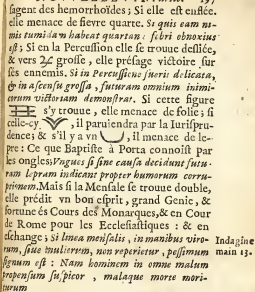 sagent des hemorrhoïdes ; Si elle est enflée.
elle menace de fievre quarte. Si quis eam ni-
mis tumidam habeat quartanæ febri obnoxius
est ; Si en la Percussion elle se trouue desliée,
& vers ♃ grosse, elle présage victoire sur
ses ennemis. Si in Percussione fuerit delicata,
& in ascensu grossa, futuram omnium inimi-
corum victoriam demonstrat. Si cette figure
s'y trouue, elle menace de folie ; si
celle-cy , il paruiendra par la Iurispru-
dence ; & s'il y a vn , il menace de le-
pre : Ce que Baptiste à Porta connoist par
les ongles ; Vngues si sine causa decidunt futu-
ram lepram indicant propter humorem corru-
ptionem. Mais si la Mensale se trouue double,
elle prédit vn bon esprit, grand Genie, &
fortune és Cours des Monarques, & en Cour
de Rome pour les Ecclesiastiques : & en
eschange ; Si linea mensalis, in manibus viro-
rum, siue mulierum, non reperietur, pessimum
signum est : Nam hominem in omne malum
propensum suspicor, malaque morte mori-
turum
Indagine
main 13.